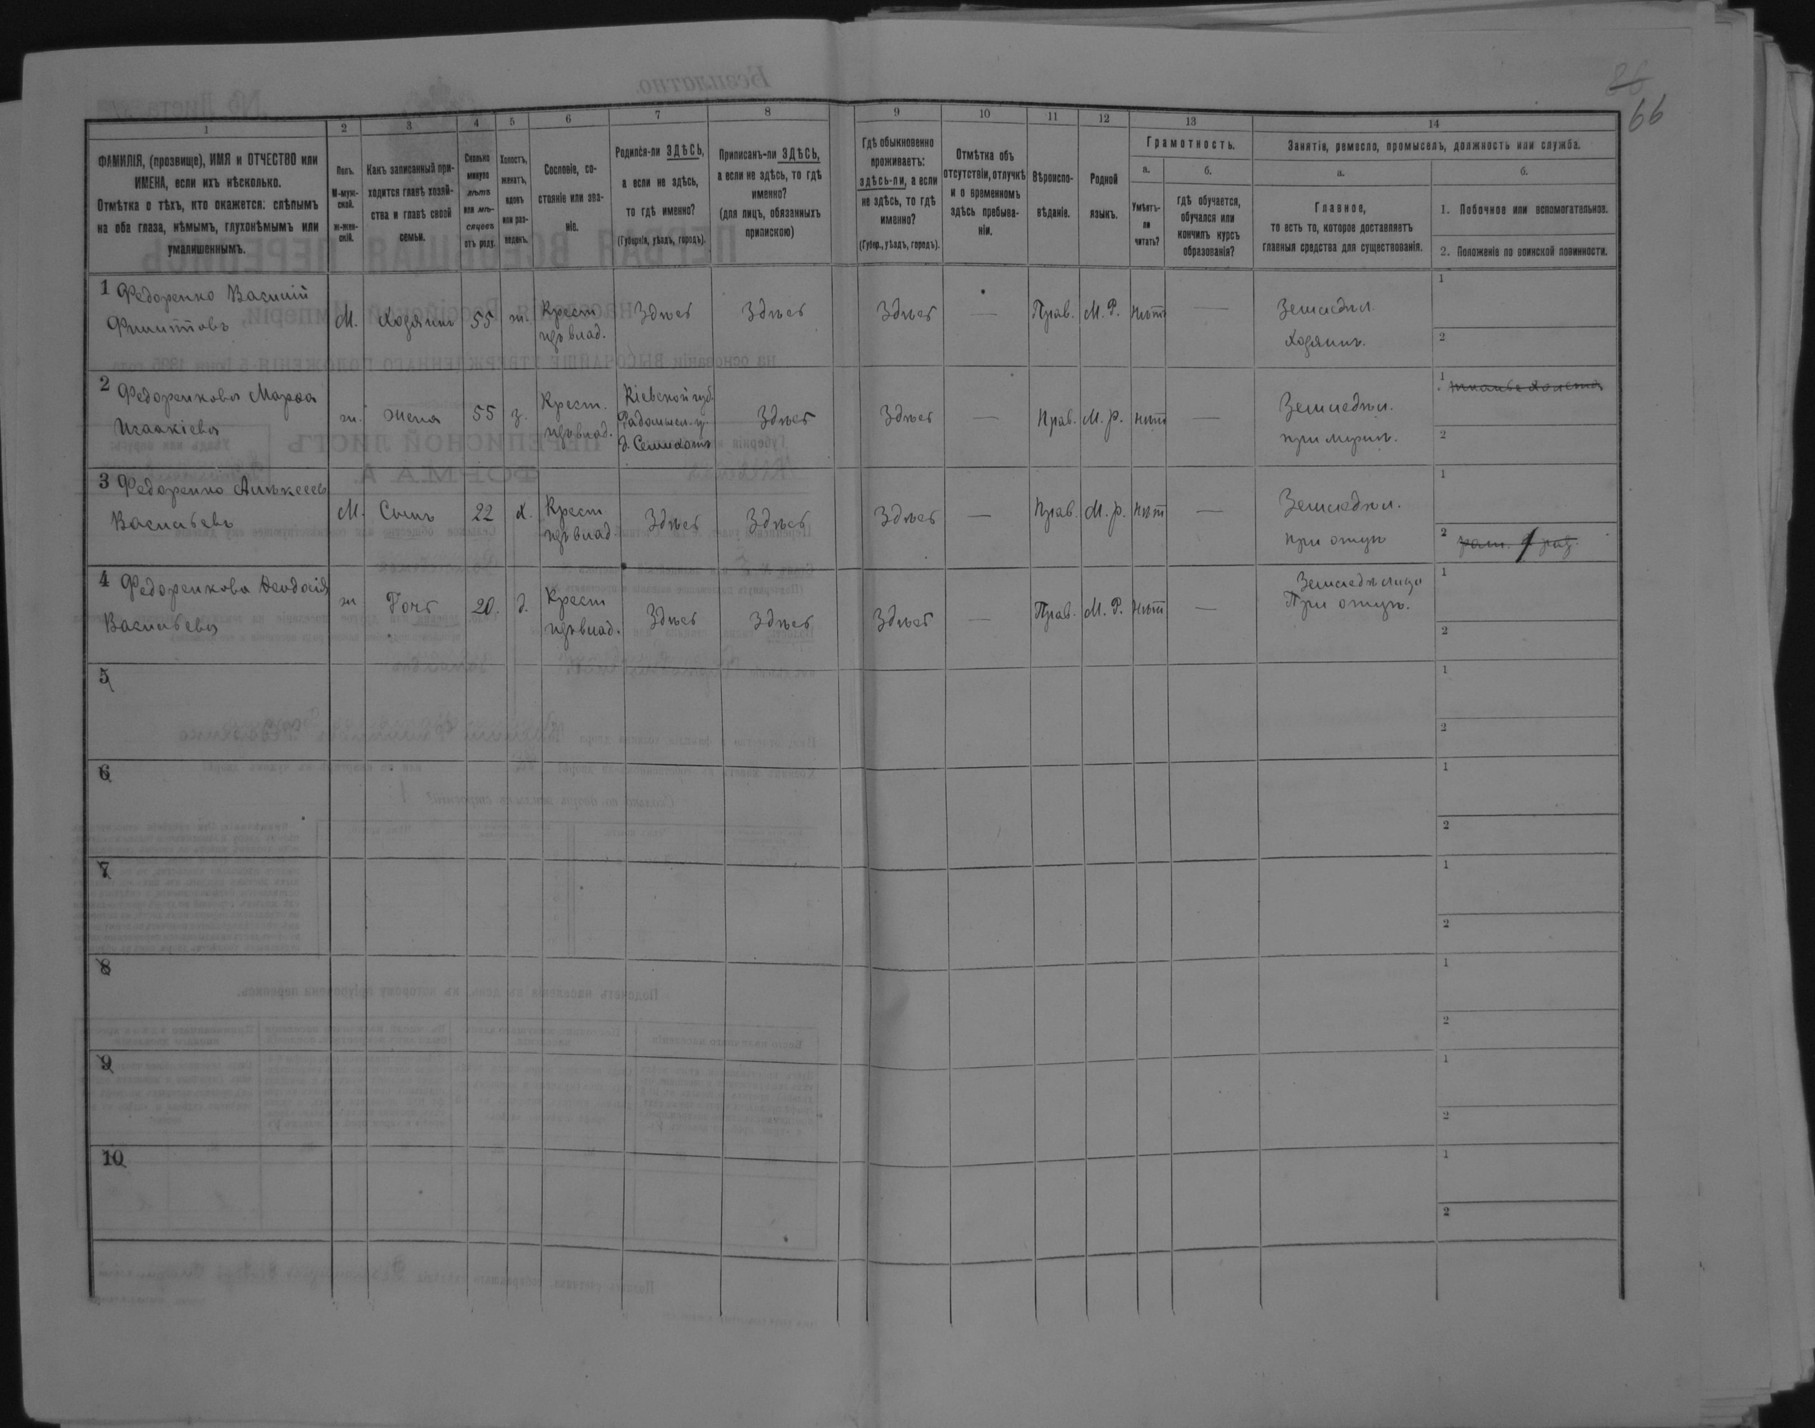 86
66
1
2
3
4
5
6
7
8
9
10
11
12
13
14
ФАМИЛІЯ, (прозвище), ИМЯ и ОТЧЕСТВО или
ИМЕНА, если ихъ нѣсколько.
Отмѣтка о тѣхъ, кто окажется: слѣпымъ
на оба глаза, нѣмымъ, глухонѣмымъ или
умалишеннымъ.
Полъ.
М-муж-
ской.
ж-жен-
скій.
Какъ записанный при-
ходится главѣ хозяй-
ства и главѣ своей
семьи.
Сколько
минуло
лѣтъ
или мѣ-
сяцевъ
отъ роду.
Холостъ,
женатъ,
вдовъ
или раз-
веденъ.
Сословіе, со-
стояніе или зва-
ніе.
Родился-ли ЗДѢСЬ,
а если не здѣсь,
то гдѣ именно?
(Губернія, уѣздъ, городъ).
Приписанъ-ли ЗДѢСЬ,
а если не здѣсь, то гдѣ
именно?
(для лицъ, обязанныхъ
припискою)
Гдѣ обыкновенно
проживаетъ:
здѣсь-ли, а если
не здѣсь, то гдѣ
именно?
(Губер., уѣздъ, городъ).
Отмѣтка объ
отсутствіи, отлучкѣ
и о временномъ
здѣсь пребыва-
ніи.
Вѣроиспо-
вѣданіе.
Родной
языкъ.
Грамотность.
а.
б.
Умѣетъ-
ли
читать?
гдѣ обучается,
обучался или
кончилъ курсъ
образованія?
Занятіе, ремесло, промыселъ, должность или служба.
а.
б.
Главное,
то есть то, которое доставляетъ
главныя средства для существованія.
1. Побочное или вспомогательное.
2. Положеніе по воинской повинности.
1 Федоренко Василій
Филипповъ
М.
Хозяинъ
55
ж.
Крест
изъ влад.
Здѣсь
Здѣсь
Здѣсь
—
Прав.
М. Р.
нѣтъ
—
Земледѣл.
Хозяинъ.
1
2
2 Федоренкова Марѳа
Исаакіева
ж.
Жена
55
з.
Крест.
изъ влад.
Кіевской губ.
Радомысл. у.
Здѣсь
Здѣсь
—
Прав.
М. р.
нѣтъ
—
Земледѣл.
при мужѣ.
1
2
3 Федоренко Алексѣй
Васильевъ
М.
Сынъ
22
х.
Крест
изъ влад
Здѣсь
Здѣсь
Здѣсь
—
Прав.
М. р.
нѣт
—
Земледѣл.
при отцѣ
1
2
4 Федоренкова Ѳеодосія
Васильева
ж
Дочь
20.
д.
Крест
изъ влад.
Здѣсь
Здѣсь
Здѣсь
—
Прав.
М. Р.
нѣтъ
—
Земледѣлица
При отцѣ.
1
2
5
1
2
6
1
2
7
1
2
8
1
2
9
1
2
10
1
2